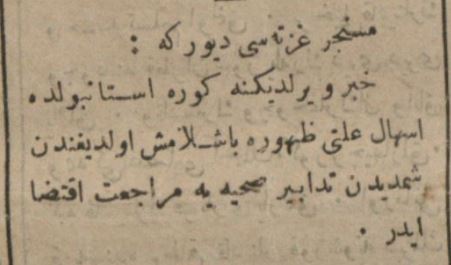 مسنجر غزته‌سی دیورکه :
خبر ویرلدیكنه كوره استانبولده
اسهال علتی ظهوره باشلامش اولدیغندن
شمدیدن تدابیر صحیه یه مراجعت اقتضا
ایدر ٠